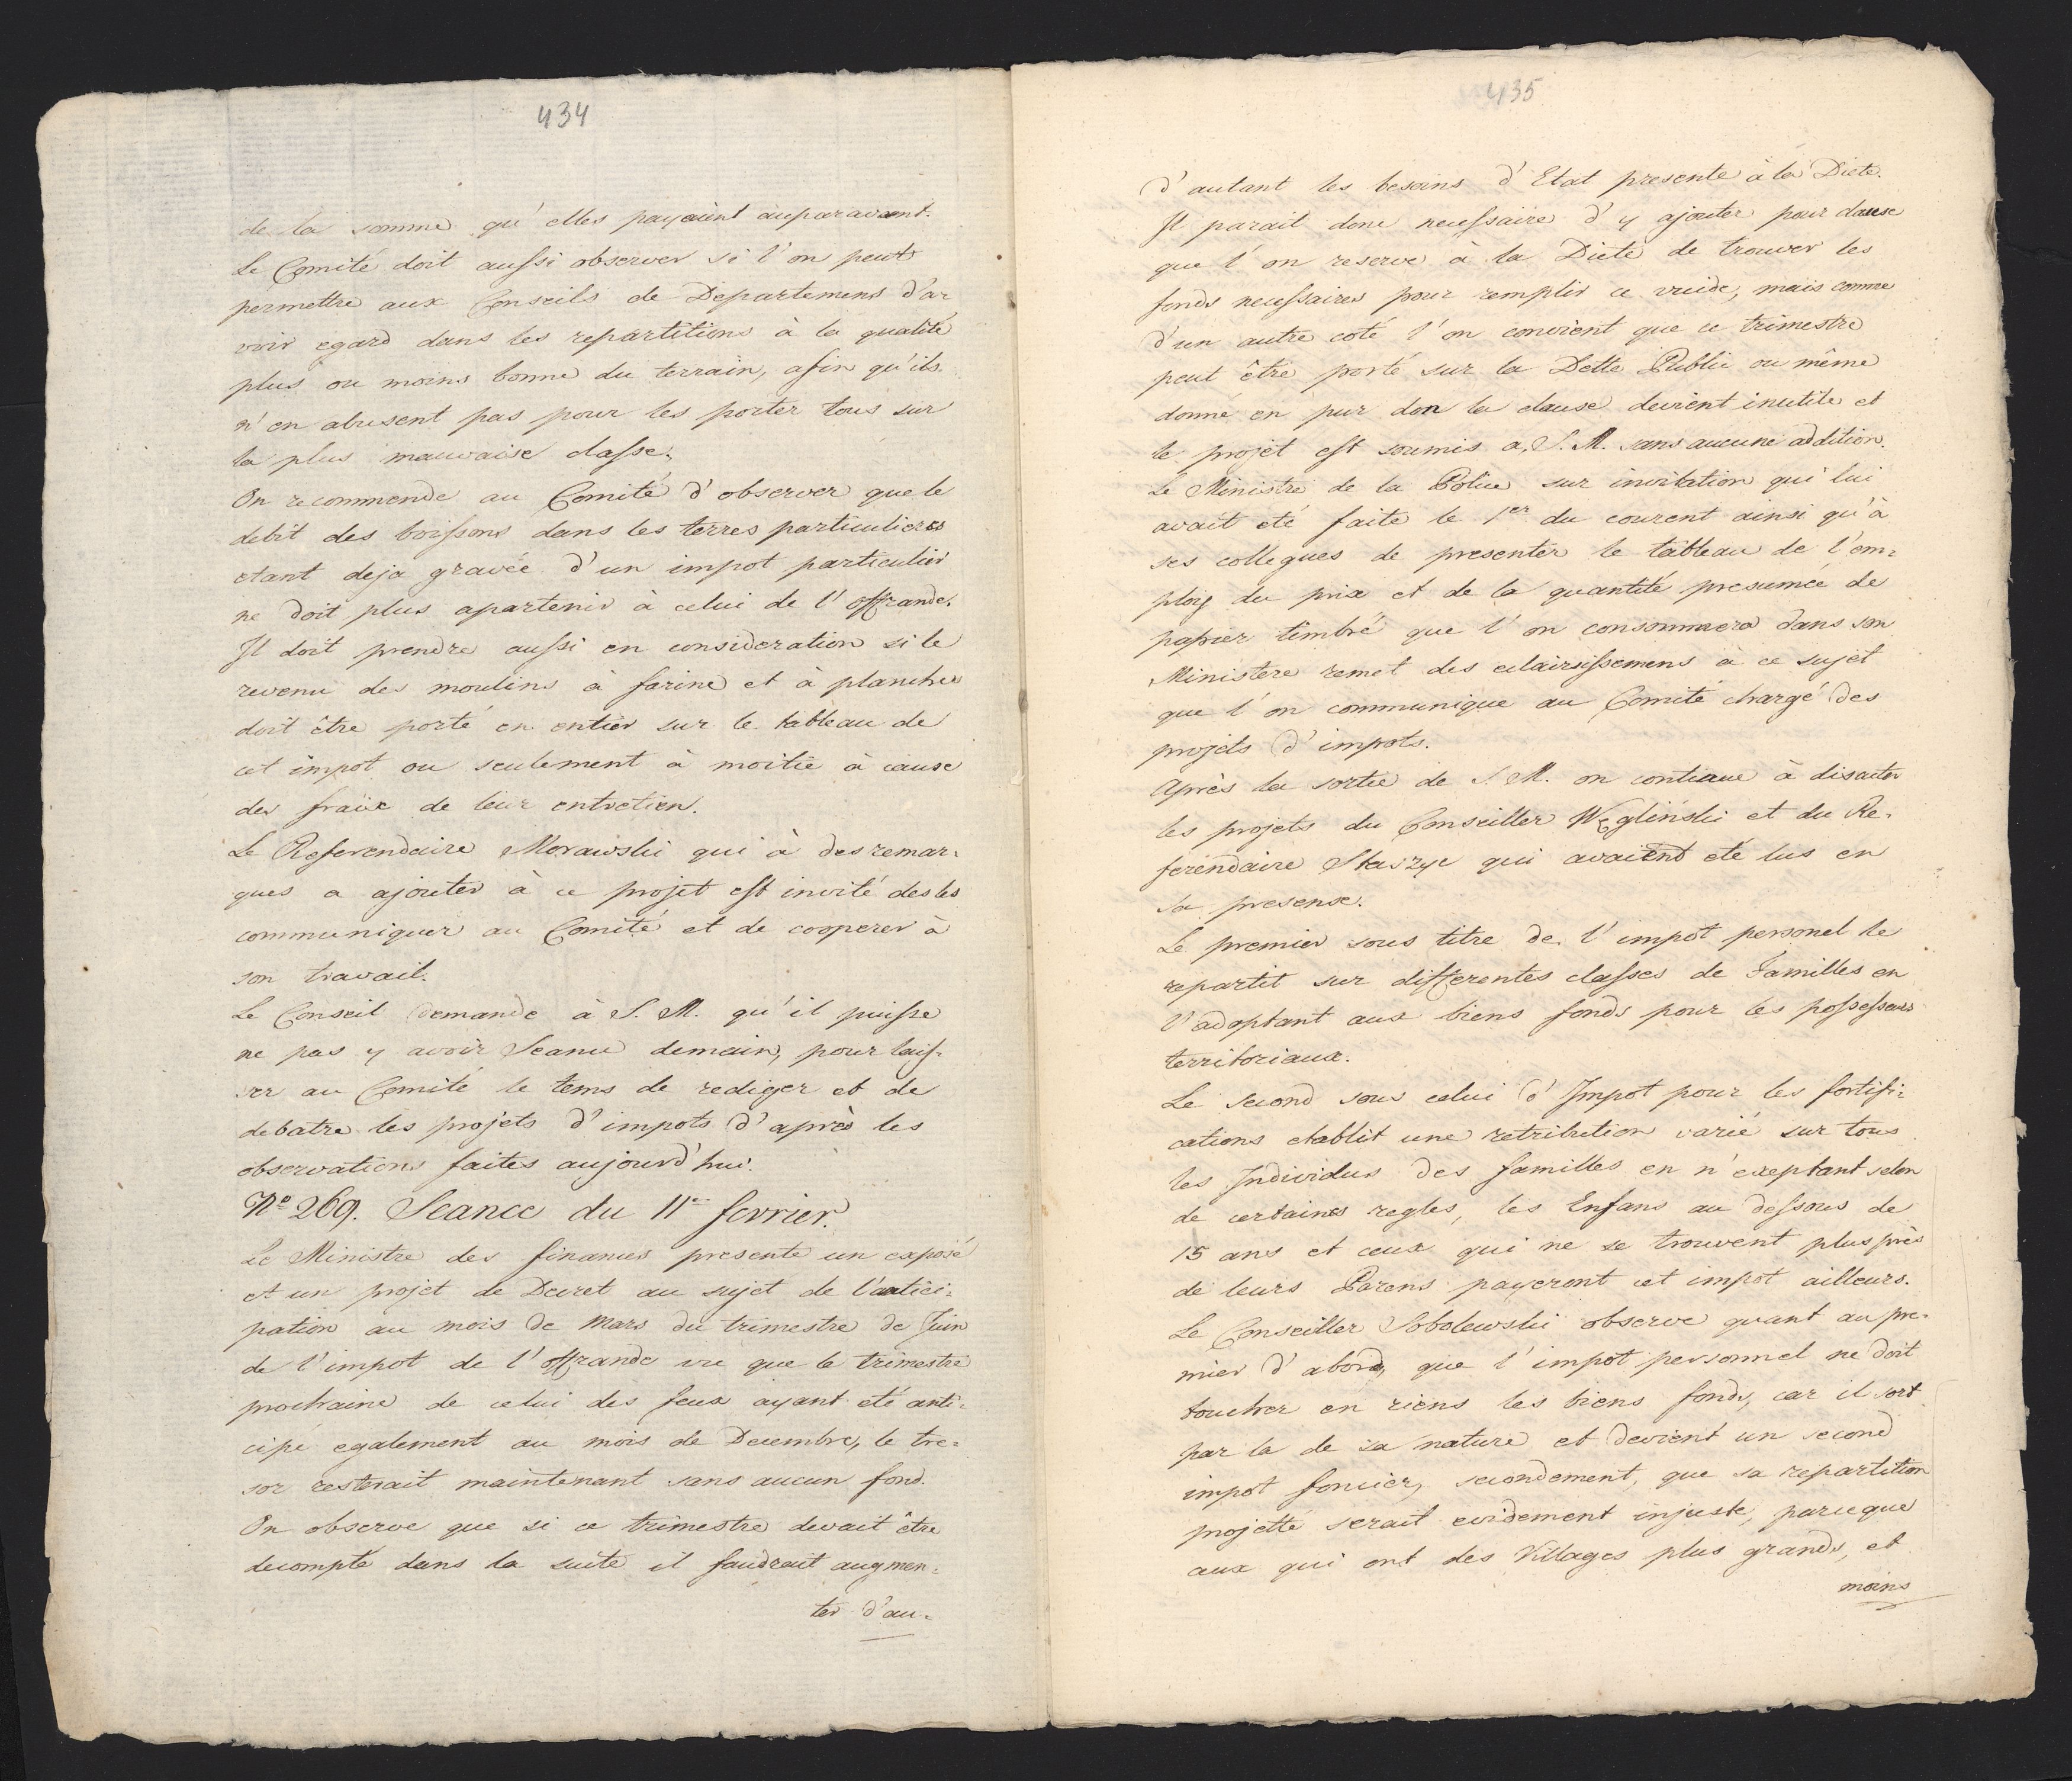 434
de la somme qu'elles payaient auparavant.
Le Comité doit aussi observer si l'on peut
permettre aux Conseils de Departemens d'a=
voir egard dans les repartitions à la qualité
plus ou moins bonne du terrain, afin qu'ils
n'en abusent pas pour les porter tous sur
la plus mauvaise classe.
On recommende au Comité d'observer que le
debit des boissons dans les terres particulieres
etant deja gravée d'un impot particulier
ne doit plus apartenir à celui de l'offrande.
Il doit prendre aussi en consideration si le
revenu des moulins à farine et à planches
doit être porté en entier sur le tableau de
cet impot ou seulement à moitié à cause
des fraix de leur entretien.
Le Referendaire Morawski qui à des remar=
ques a ajouter à ce projet est invité de les
communiquer au Comité et de cooperer à
son travail.
Le Conseil demande à S. M. qu'il puisse
ne pas y avoir Seance demain, pour lais=
ser au Comité le tems de rediger et de
debatre les projets d'impots d'après les
observations faites aujourd'hui.
No 269. Seance du 11 fevrier.
Le Ministre des finances presente un exposé
et un projet de Decret au sujet de l'antici=
pation au mois de Mars du trimestre de Juin
de l'impot de l'offrande vu que le trimestre
prochaine de celui des feux ayant eté anti=
cipé egalement au mois de Decembre, le tre=
sor resterait maintenant sans aucun fond.
On observe que si ce trimestre devait être
decompté dans la suite il faudrait augmen=
ter d'au=
435
d'autant les besoins d'Etat presente à la Diete.
Il parait donc necessaire d'y ajouter pour clause
que l'on reserve à la Diete de trouver les
fonds necessaires pour remplir ce vuide, mais comme
d'un autre coté l'on convient que ce trimestre
peut être porté sur la Dette Public ou même
donné en pur don la clause devient inutile et
le projet est soumis a S. M. sans aucune addition.
Le Ministre de la Police sur invitation qui lui
avait eté faite le 1er du courent ainsi qu'à
ses collegues de presenter le tableau de l'em=
ploy du prix et de la quantité presumée de
papier timbré que l'on consommera dans son
Ministere remet des eclairsissemens à ce sujet
que l'on communique au Comité chargé des
projets d'impots.
Après la sortie de S. M. on continue à discuter
les projets du Conseiller Węgliński et du Re=
ferendaire Staszyc qui avaient eté lus en
sa presense.
Le premier sous titre de l'impot personel le
repartit sur differentes classes de Familles en
l'adaptant aux biens fonds pour les possesseurs
territoriaux.
Le second sous celui d'Impot pour les fortifi=
cations etablit une retribution varié sur tous
les Individus des familles en n'exeptant selon
de certaines regles, les Enfans au dessous de
15 ans et ceux qui ne se trouvent plus près
de leurs Parens payeront cet impot ailleurs.
Le Conseiller Sobolewski observe quant au pre=
mier d'abord, que l'impot personnel ne doit
toucher en riens les biens fonds, car il sort
par la de sa nature et devient un second
impot foncier, secondement, que sa repartition
projetté serait evidement injuste, parceque
ceux qui ont des Villages plus grands, et
moins